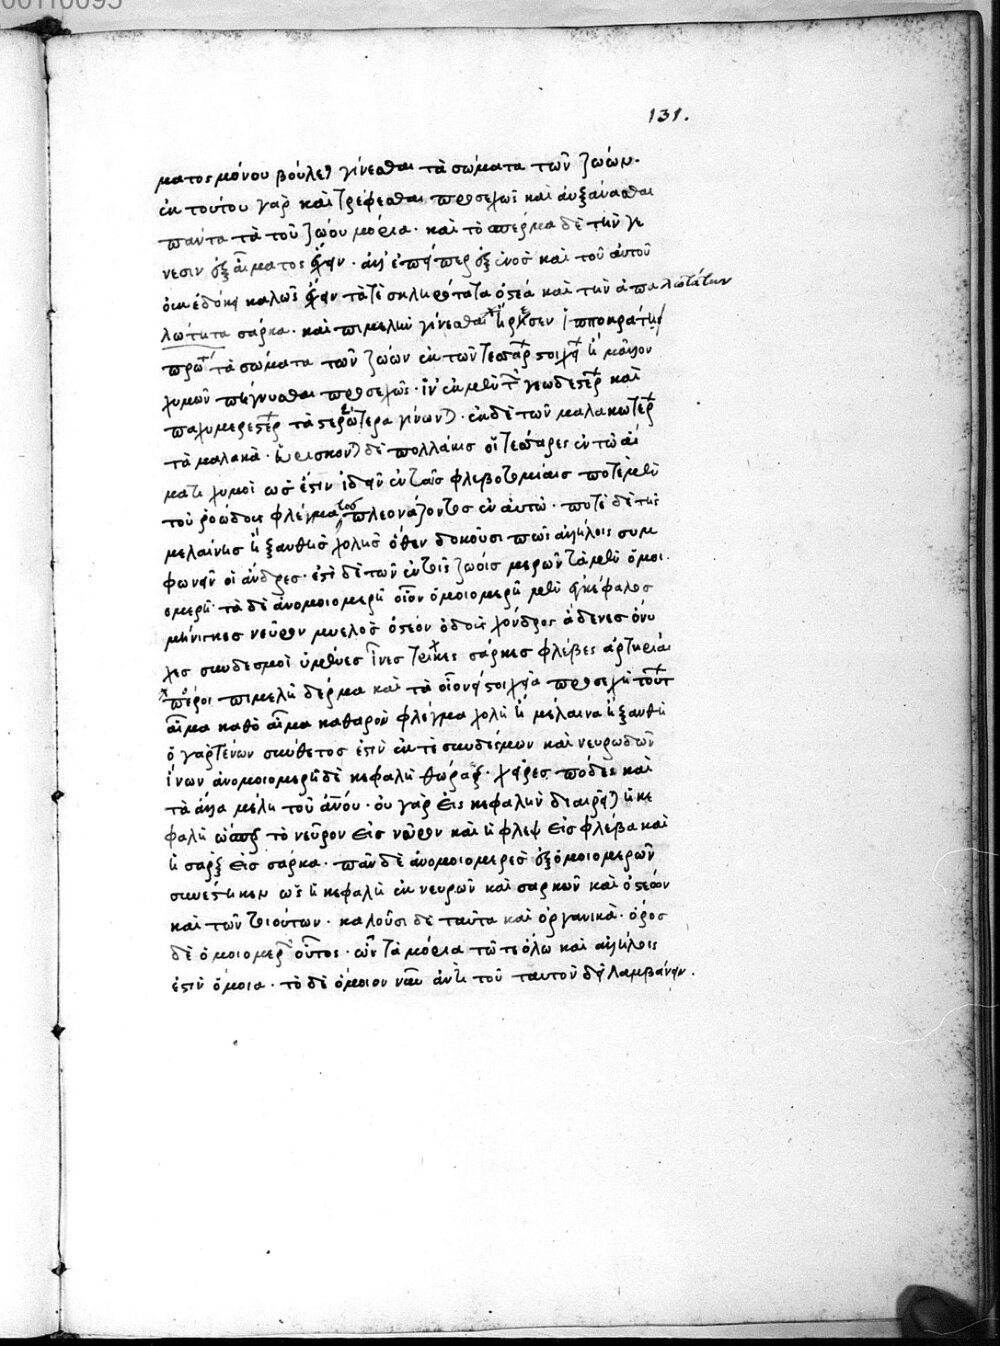 00110095
131.
ματος μόνου βούλεται γίνεσθαι τὰ σώματα τῶν ζώων·
ἐκ τούτου γὰρ καὶ τρέφεσθαι προσεχῶς καὶ αὐξάνεσθαι
πάντα τὰ τοῦ ζώου μόρια· καὶ τὸ σπέρμα δὲ τὴν γέ
νεσιν ἐξ αἵματος ἔχειν· ἀλλ' ἐπειδήπερ ἐξ ἑνὸς καὶ τοῦ αὐτοῦ
οὐκ ἐδόκει καλῶς ἔχειν τά τε σκληρότατα ὀστέα καὶ τὴν ἁπαλωτάτην
λωτητα σάρκα· καὶ πιμελὴν γίνεσθαι Ἱπποκράτης
πρῶτον τὰ σώματα τῶν ζώων ἐκ τῶν τεσσάρων στοιχείων ἢ μᾶλλον
χυμῶν πήγνυσθαι προσεχῶς· ἵν' ἐκ μὲν τῶν γεωδεστέρων καὶ
παχυμερεστέρων τὰ στερεώτερα γίνωνται· ἐκ δὲ τῶν μαλακωτέρων
τὰ μαλακά· εὑρίσκονται δὲ πολλάκις οἱ τέσσαρες ἐν τῷ αἵ
ματι χυμοὶ ὡς ἔστιν ἰδεῖν ἐν ταῖς φλεβοτομίαις ποτὲ μὲν
τοῦ ῥοώδους φλέγματος πλεονάζοντος ἐν αὐτῷ· ποτὲ δὲ τῆς
μελαίνης ἢ ξανθῆς χολῆς ὅθεν δοκοῦσι πως ἀλλήλοις συμ
φωνεῖν οἱ ἄνδρες· ἔτι δὲ τῶν ἐν τοῖς ζώοις μερῶν τὰ μὲν ὁμοι
ομερῆ· τὰ δὲ ἀνομοιομερῆ οἷον ὁμοιομερῆ μὲν ἐγκέφαλος
μήνιγγες νεῦρον μυελὸς ὀστέον ὀδοὺς χόνδρος ἀδένες ὄνυ
χες σύνδεσμοι ὑμένες ἶνες τρίχες σάρκες φλέβες ἀρτηρίαι
πόροι πιμελὴ δέρμα καὶ τὰ οἱονεὶ στοιχεῖα προσεχῆ τούτων
αἷμα καθὸ αἷμα καθαρὸν φλέγμα χολὴ ἡ μέλαινα ἢ ξανθὴ
ὁ γὰρ τένων σύνθετος ἐστὶν ἔκ τε συνδέσμων καὶ νευρωδῶν
ἰνων ἀνομοιομερῆ δὲ κεφαλὴ θώραξ· χεῖρες πόδες καὶ
τὰ ἄλλα μέλη τοῦ ἀνου· οὐ γὰρ εἰς κεφαλὴν διαιρεῖται ἡ κε
φαλὴ ὥσπερ τὸ νεῦρον εἰς νεῦρον καὶ ἡ φλὲψ εἰς φλέβα καὶ
ἡ σὰρξ εἰς σάρκα· πᾶν δὲ ἀνομοιομερὲς ἐξ ὁμοιομερῶν
συνέστηκεν ὡς ἡ κεφαλὴ ἐκ νευρῶν καὶ σαρκῶν καὶ ὀστέων
καὶ τῶν τοιούτων· καλοῦσι δὲ ταῦτα καὶ ὀργανικά· ὅρος
δὲ ὁμοιομεροῦς οὗτος· ὧν τὰ μόρια τῷ τε ὅλῳ καὶ ἀλλήλοις
ἐστὶν ὅμοια· τὸ δὲ ὅμοιον νῦν ἀντὶ τοῦ ταυτοῦ δεῖ λαμβάνειν.